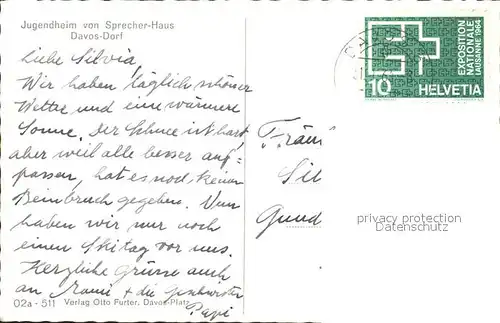 Jugendheim von Sprecher-Haus
Davos-Dorf
Liebe Silvia,
Wir haben täglich schönes
Wetter und eine wärmere
Sonne. Der Schnee ist hart,
aber weil alle besser auf=
passen, hat es noch keinen
Beinbruch gegeben. Nun
haben wir nur noch
einen Skitag vor uns.
Herzliche Grüsse auch
an Mami + die Geschwister
Papi
02a - 511 Verlag Otto Furter, Davos-Platz
EXPOSITION
NATIONALE
LAUSANNE 1964
10 HELVETIA
Fräu
Sil
Gund
privacy protection
Datenschutz